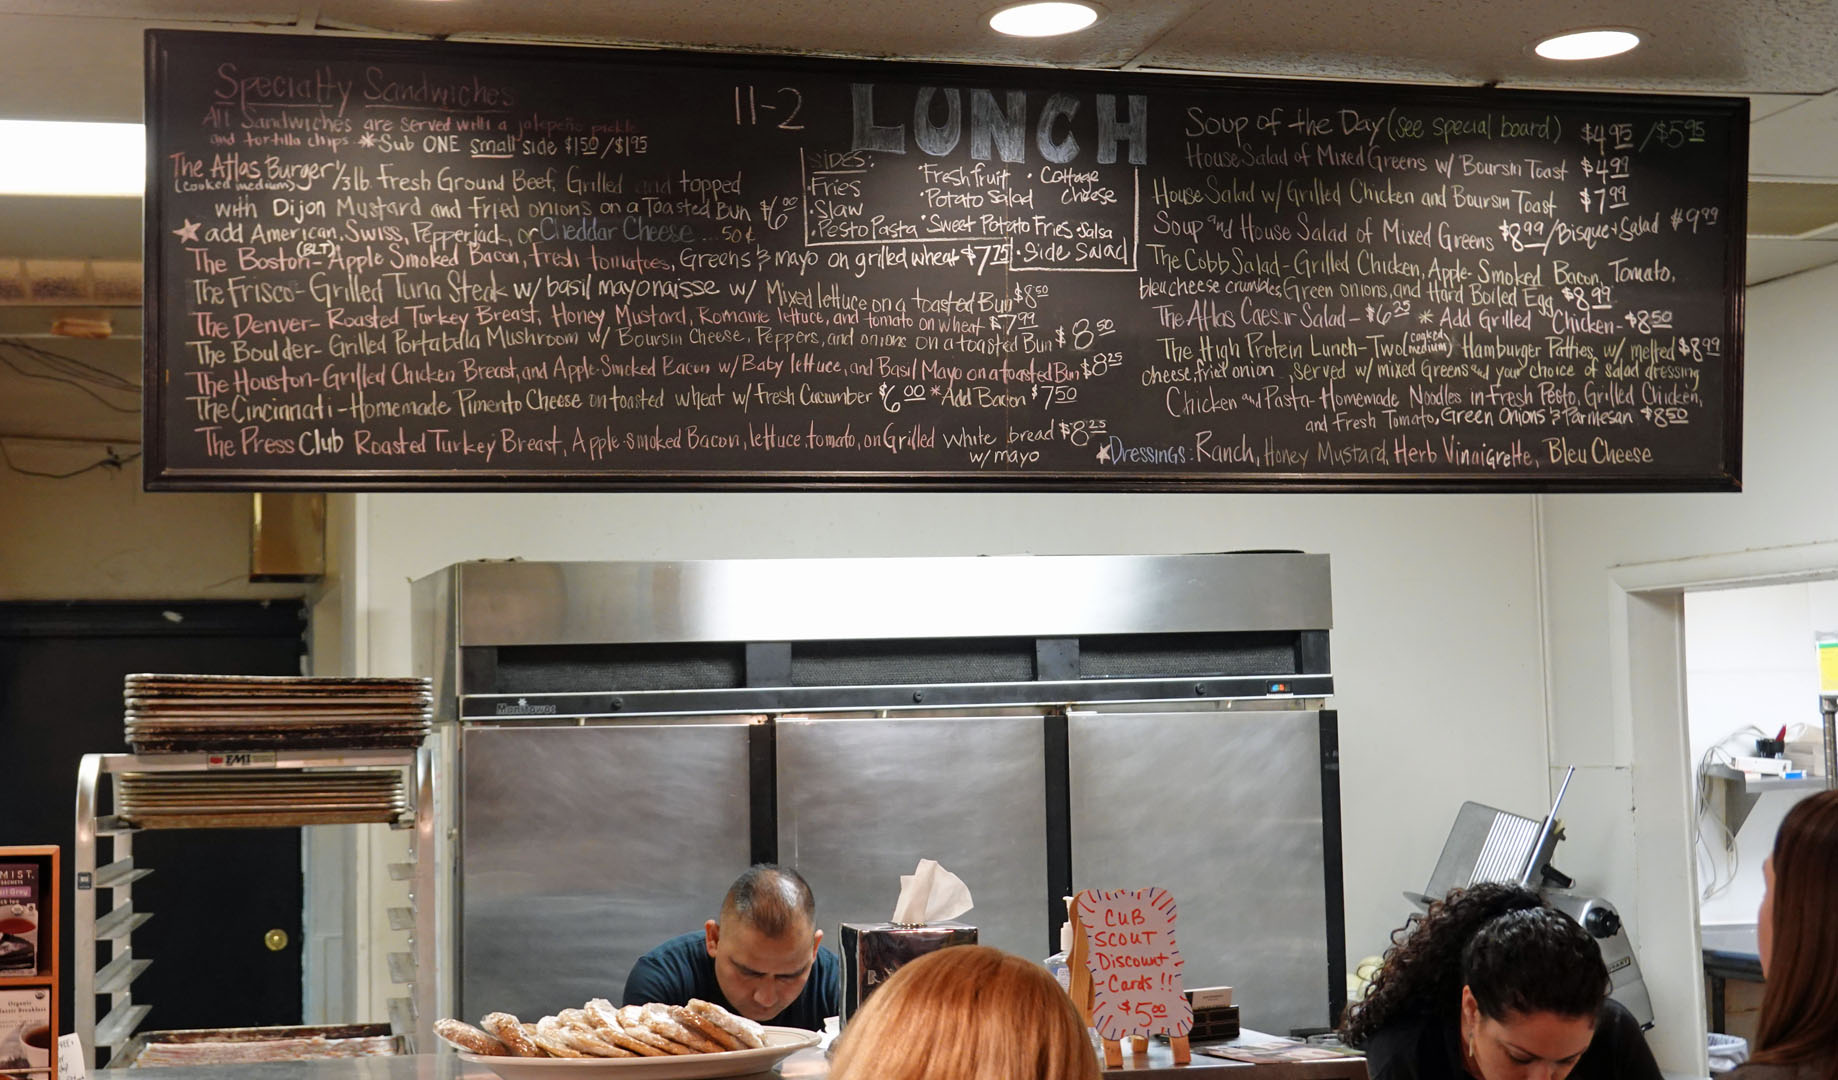 Specialty Sandwiches
All Sandwiches are served with a jalapeño pickle
and tortilla chips *Sub ONE small side $1.50/$1.95
The Atlas Burger 1/3 lb. fresh Ground Beef, Grilled and topped
(cooked medium)
with Dijon Mustard and fried onions on a Toasted Bun $6.00
★ add American, Swiss, Pepperjack, or Cheddar Cheese ...50¢
The Boston-(BLT) Apple Smoked Bacon, fresh tomatoes, Greens & mayo on grilled wheat $7.75
The Frisco-Grilled Tuna Steak w/ basil mayonaisse w/ Mixed lettuce on a toasted Bun $8.50
The Denver-Roasted Turkey Breast, Honey Mustard, Romaine lettuce, and tomato on wheat $7.99
The Boulder-Grilled Portabella Mushroom w/ Boursin Cheese, Peppers, and onions on a toasted Bun $8.50
The Houston-Grilled Chicken Breast, and Apple-Smoked Bacon w/ Baby lettuce, and Basil Mayo on a toasted Bun $8.25
The Cincinnati-Homemade Pimento Cheese on toasted wheat w/ fresh Cucumber $6.00 *Add Bacon $7.50
The Press Club Roasted Turkey Breast, Apple-smoked Bacon, lettuce, tomato, on Grilled white bread $8.25
w/ mayo
11-2 LUNCH
SIDES:
·Fries
·Slaw
·Pesto Pasta
·Fresh fruit
·Potato Salad
·Sweet Potato Fries
·Cottage Cheese
·Salsa
·Side Salad
Soup of the Day (see special board) $4.95/$5.95
House Salad of Mixed Greens w/ Boursin Toast $4.99
House Salad w/ Grilled Chicken and Boursin Toast $7.99
Soup and House Salad of Mixed Greens $8.99/Bisque + Salad $9.99
The Cobb Salad-Grilled Chicken, Apple-Smoked Bacon, Tomato,
bleu cheese crumbles, Green onions, and Hard Boiled Egg $8.99
The Atlas Caesar Salad-$6.25 *Add Grilled Chicken-$8.50
The High Protein Lunch-Two (cooked medium) Hamburger Patties w/ melted $8.99
cheese, fried onion, served w/ mixed Greens and your choice of salad dressing
Chicken and Pasta-Homemade Noodles in Fresh Pesto, Grilled Chicken,
and Fresh Tomato, Green Onions & Parmesan $8.50
★Dressings: Ranch, Honey Mustard, Herb Vinaigrette, Bleu Cheese
Manitowoc
EMI
CUB
SCOUT
Discount
Cards!!
$5.00
Organic